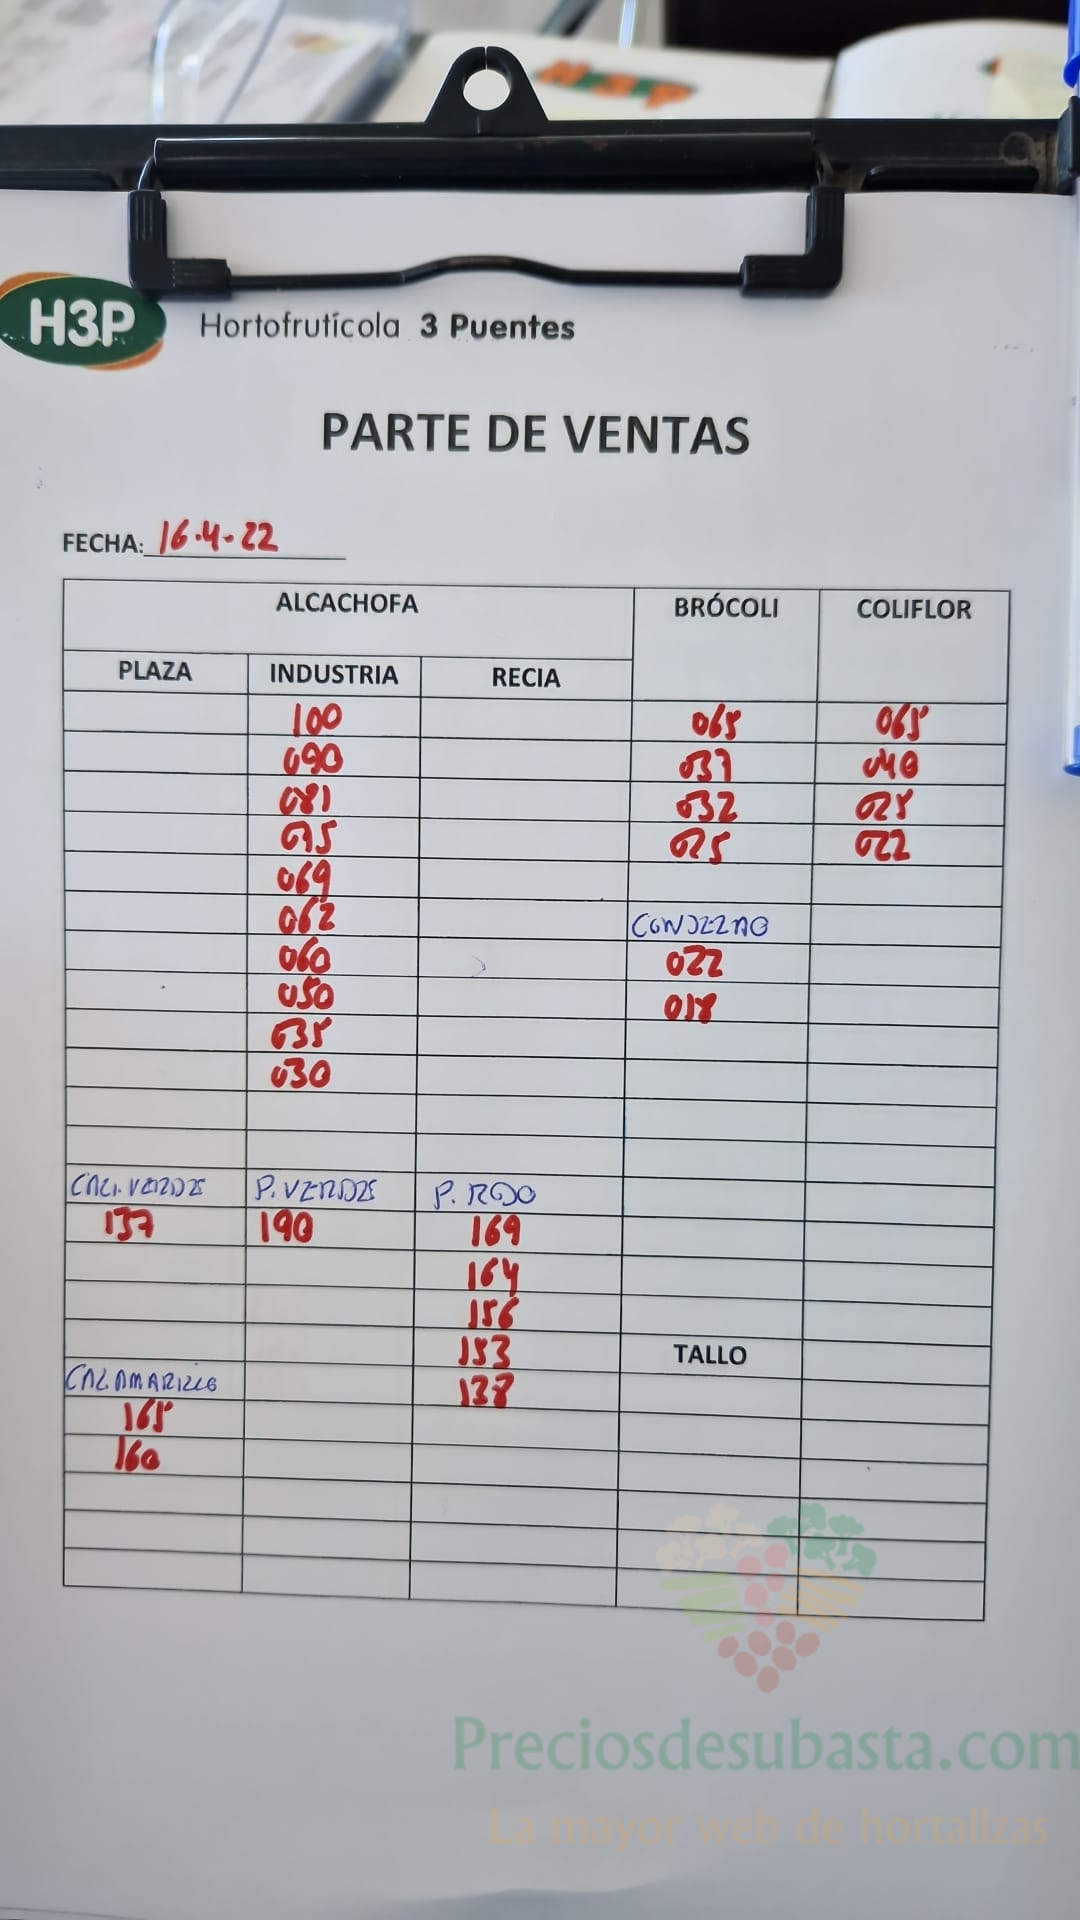 H3P
H3P Hortofrutícola 3 Puentes
PARTE DE VENTAS
FECHA: 16-4-22
ALCACHOFA BRÓCOLI COLIFLOR
PLAZA INDUSTRIA RECIA
100 065 065
090 037 040
081 032 025
075 025 022
069
062 CONDEZAO
060 022
050 018
035
030
CAL.VERDE P.VERDE P. ROJO
137 190 169
164
156
153 TALLO
CAL.AMARILLO 138
165
160
Preciosdesubasta.com
La mayor web de hortalizas